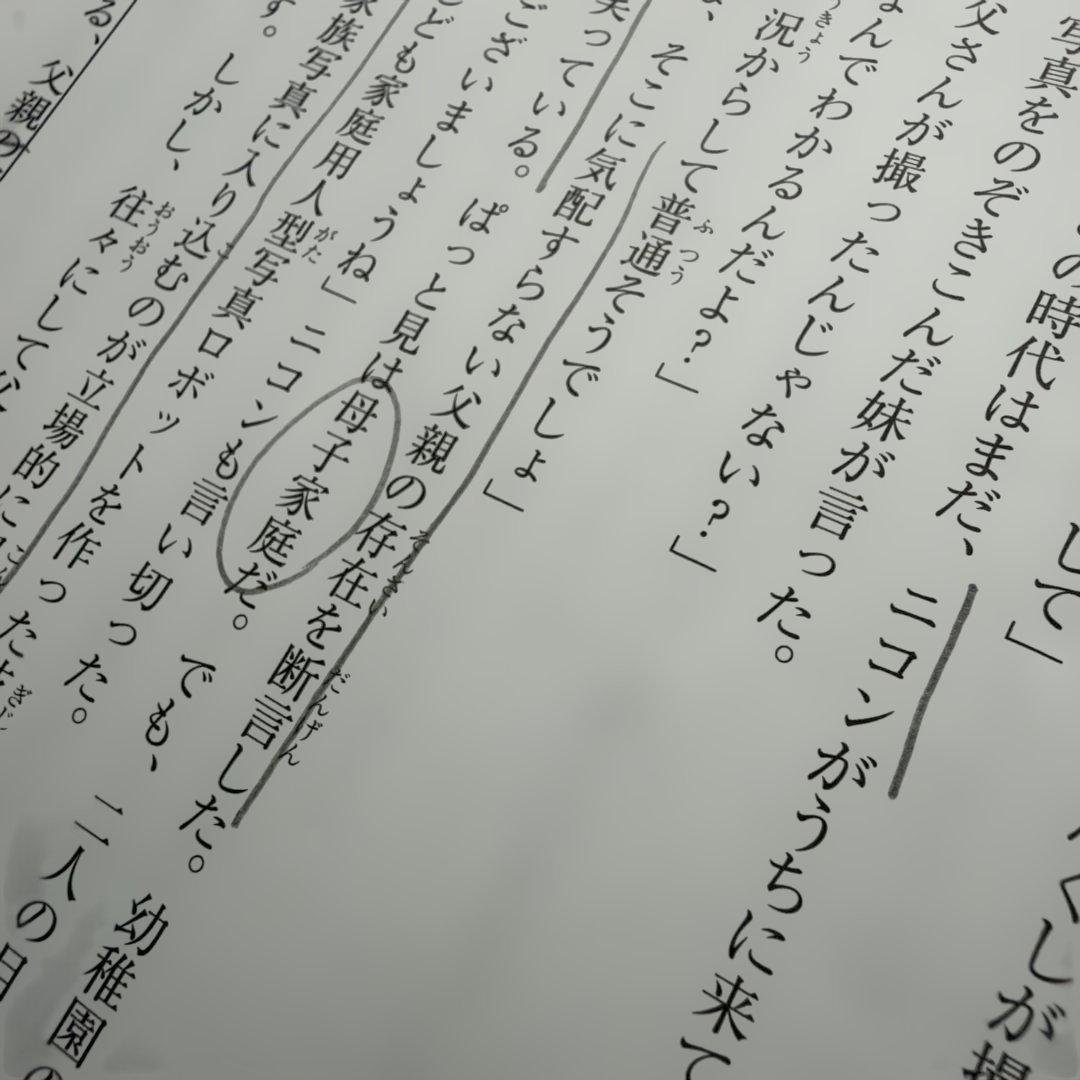 くしが撮
して」
の時代はまだ、ニコンがうちに来て
写真をのぞきこんだ妹が言った。
父さんが撮ったんじゃない？」
なんでわかるんだよ？」
況からして普通そうでしょ」
、そこに気配すらない父親の存在を断言した。
笑っている。ぱっと見は母子家庭だ。でも、幼稚園の
ございましょうね」ニコンも言い切った。二人の
ども家庭用人型写真ロボットを作った
家族写真に入り込むのが立場的に
す。しかし、往々にして父
る、父親の